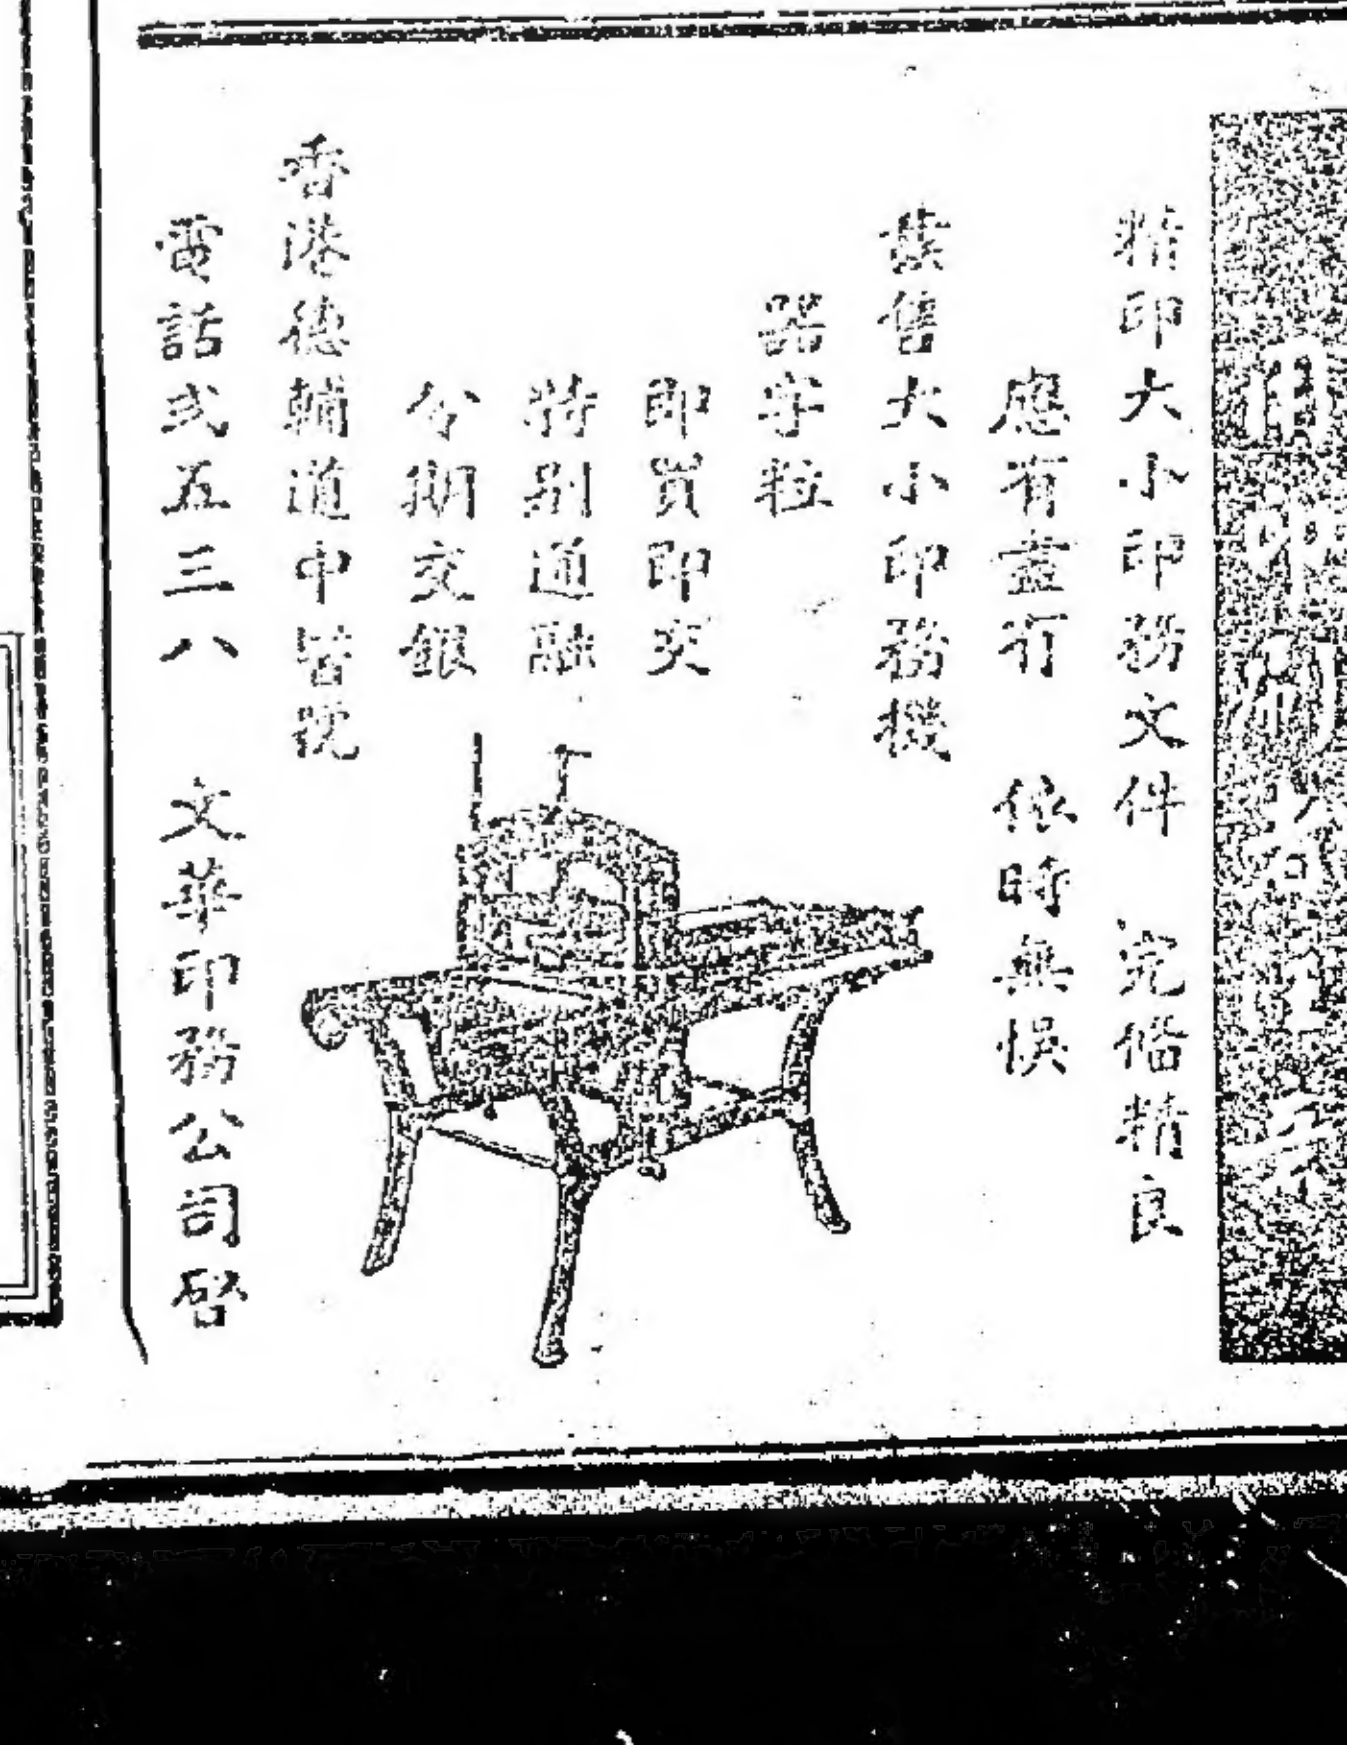 精印大小印務文件 完偹精良
應有盡有 依時無悞
發售大小印務機
器字粒
即買即交
特别通融
分期交銀
香港德輔道中
電話弍五三八 文華印務公司啓